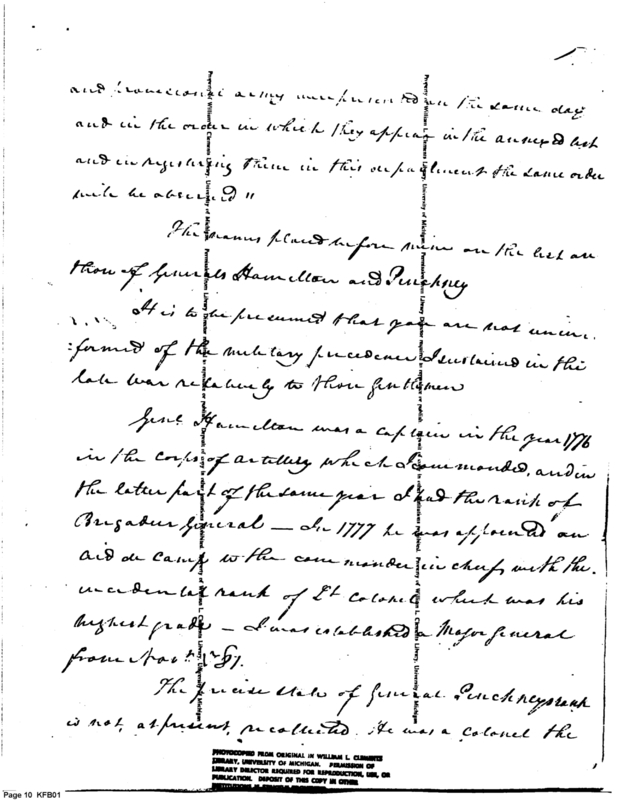 and provisional army were presented on the same day
and in the order in which they appear in the annexed list
and in registering them in this department the same order
will be observed"
The names placed before mine on the list are
those of Generals Hamilton and Pinckney
It is to be presumed that you are not unin-
:formed of the military precedence I sustained in the
late war relatively to those Gentlemen
Genl. Hamilton was a captain in the year 1776
in the corps of artillery which I commanded, and in
the latter part of the same year I had the rank of
Brigadier General — In 1777 he was appointed an
aid de camp to the commander in chief with the
incidental rank of Lt colonel which was his
highest grade — I was established a Major General
from Novr.
The precise state of General Pinckneys rank
is not, at present, recollected. He was a colonel the
Property of William L. Clements Library, University of Michigan.
Property of William L. Clements Library, University of Michigan.
PHOTOCOPIED FROM ORIGINAL IN WILLIAM L. CLEMENTS
LIBRARY, UNIVERSITY OF MICHIGAN. PERMISSION OF
LIBRARY DIRECTOR REQUIRED FOR REPRODUCTION, USE, OR
PUBLICATION. DEPOSIT OF THIS COPY IN OTHER
Page 10 KFB01